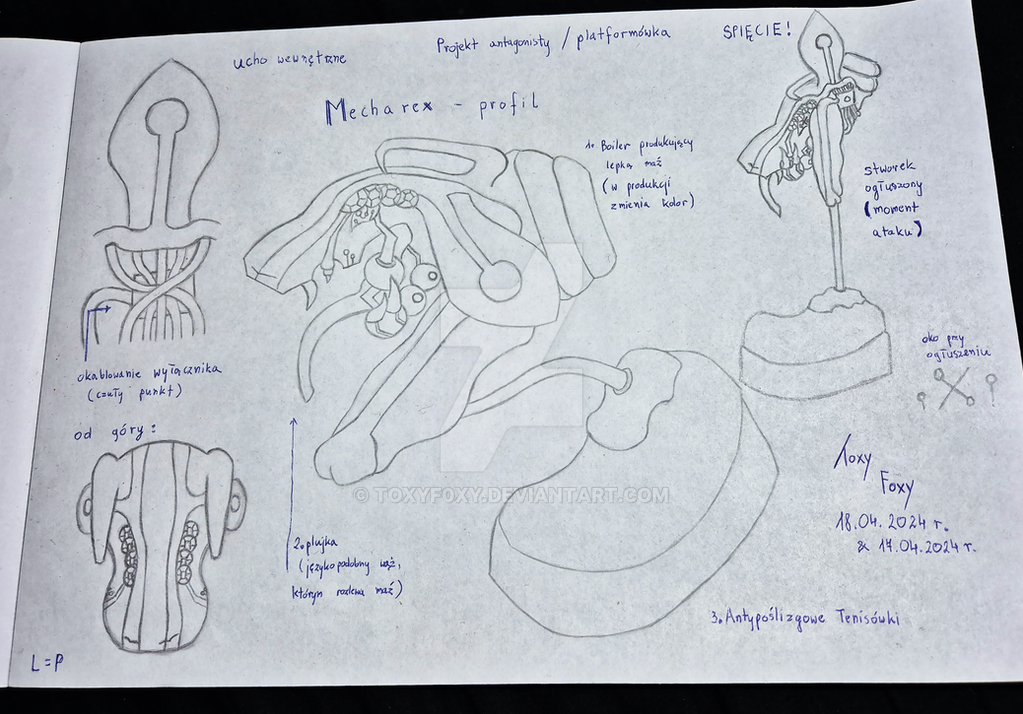 Projekt antagonisty / platformówka
SPIĘCIE!
ucho wewnętrzne
Mecharex - profil
1. Boiler produkujący
lepką maź
(w produkcji
zmienia kolor)
stworek
ogłuszony
(moment
ataku)
oko przy
ogłuszeniu
okablowanie wyłącznika
(czuły punkt)
od góry:
2. plujka
(języko podobny wąż,
którym rozlewa maź)
© TOXYFOXY.DEVIANTART.COM
Toxy
Foxy
18.04.2024 r.
& 17.04.2024 r.
3. Antypoślizgowe Tenisówki
L = P